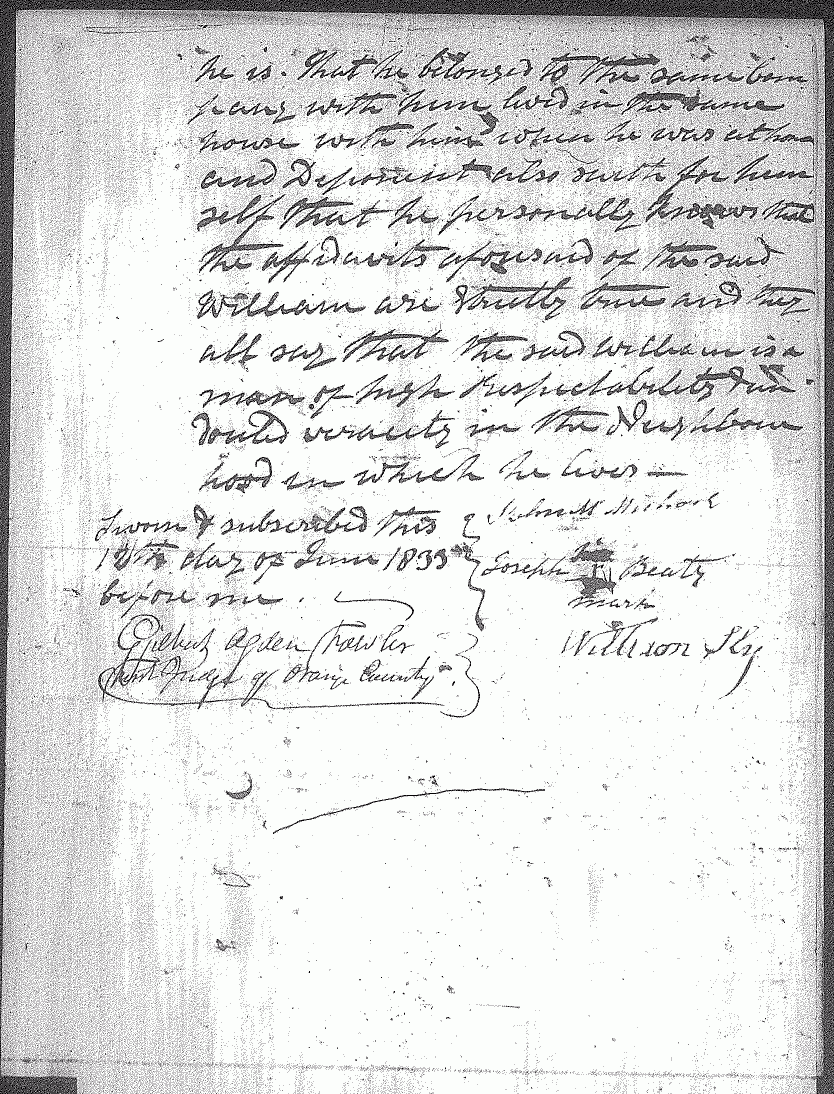 he is. That he belonged to the same com
pany with him lived in the same
house with him when he was at home
and Deponent also saith for him
self that he personally knows that
the affidavits aforesaid of the said
William are strictly true and they
all say that the said William is a
man of high Respectability & un
douted veracity in the Neighbour
hood in which he lives —
Sworn & subscribed this
12th day of June 1833
before me .
Gilbert Ogden Fowler
First Judge of Orange County
John
his
Joseph Beaty
mark
William Sly